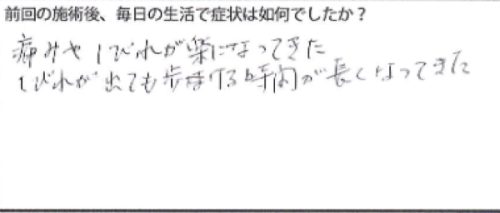 前回の施術後、毎日の生活で症状は如何でしたか?
痛みやしびれが楽になってきた
しびれが出ても歩ける時間が長くなってきた